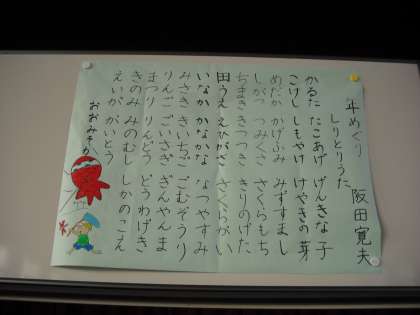 年めぐり
しりとりうた
阪田寛夫
かるた たこあげ げんきな子
こけし しもやけ けやきの芽
めだか かげふみ みずすまし
しがつ つみくさ さくらもち
ちまき きつつき きりのげた
田うえ えひがさ さくらがい
いなか かなかな なつやすみ
みさき きいちご ごむぞうり
りんご ごいさぎ ぎんやんま
まつり りんどう どうわげき
きのみ みのむし しかのこえ
えいが がいとう
おおみそか